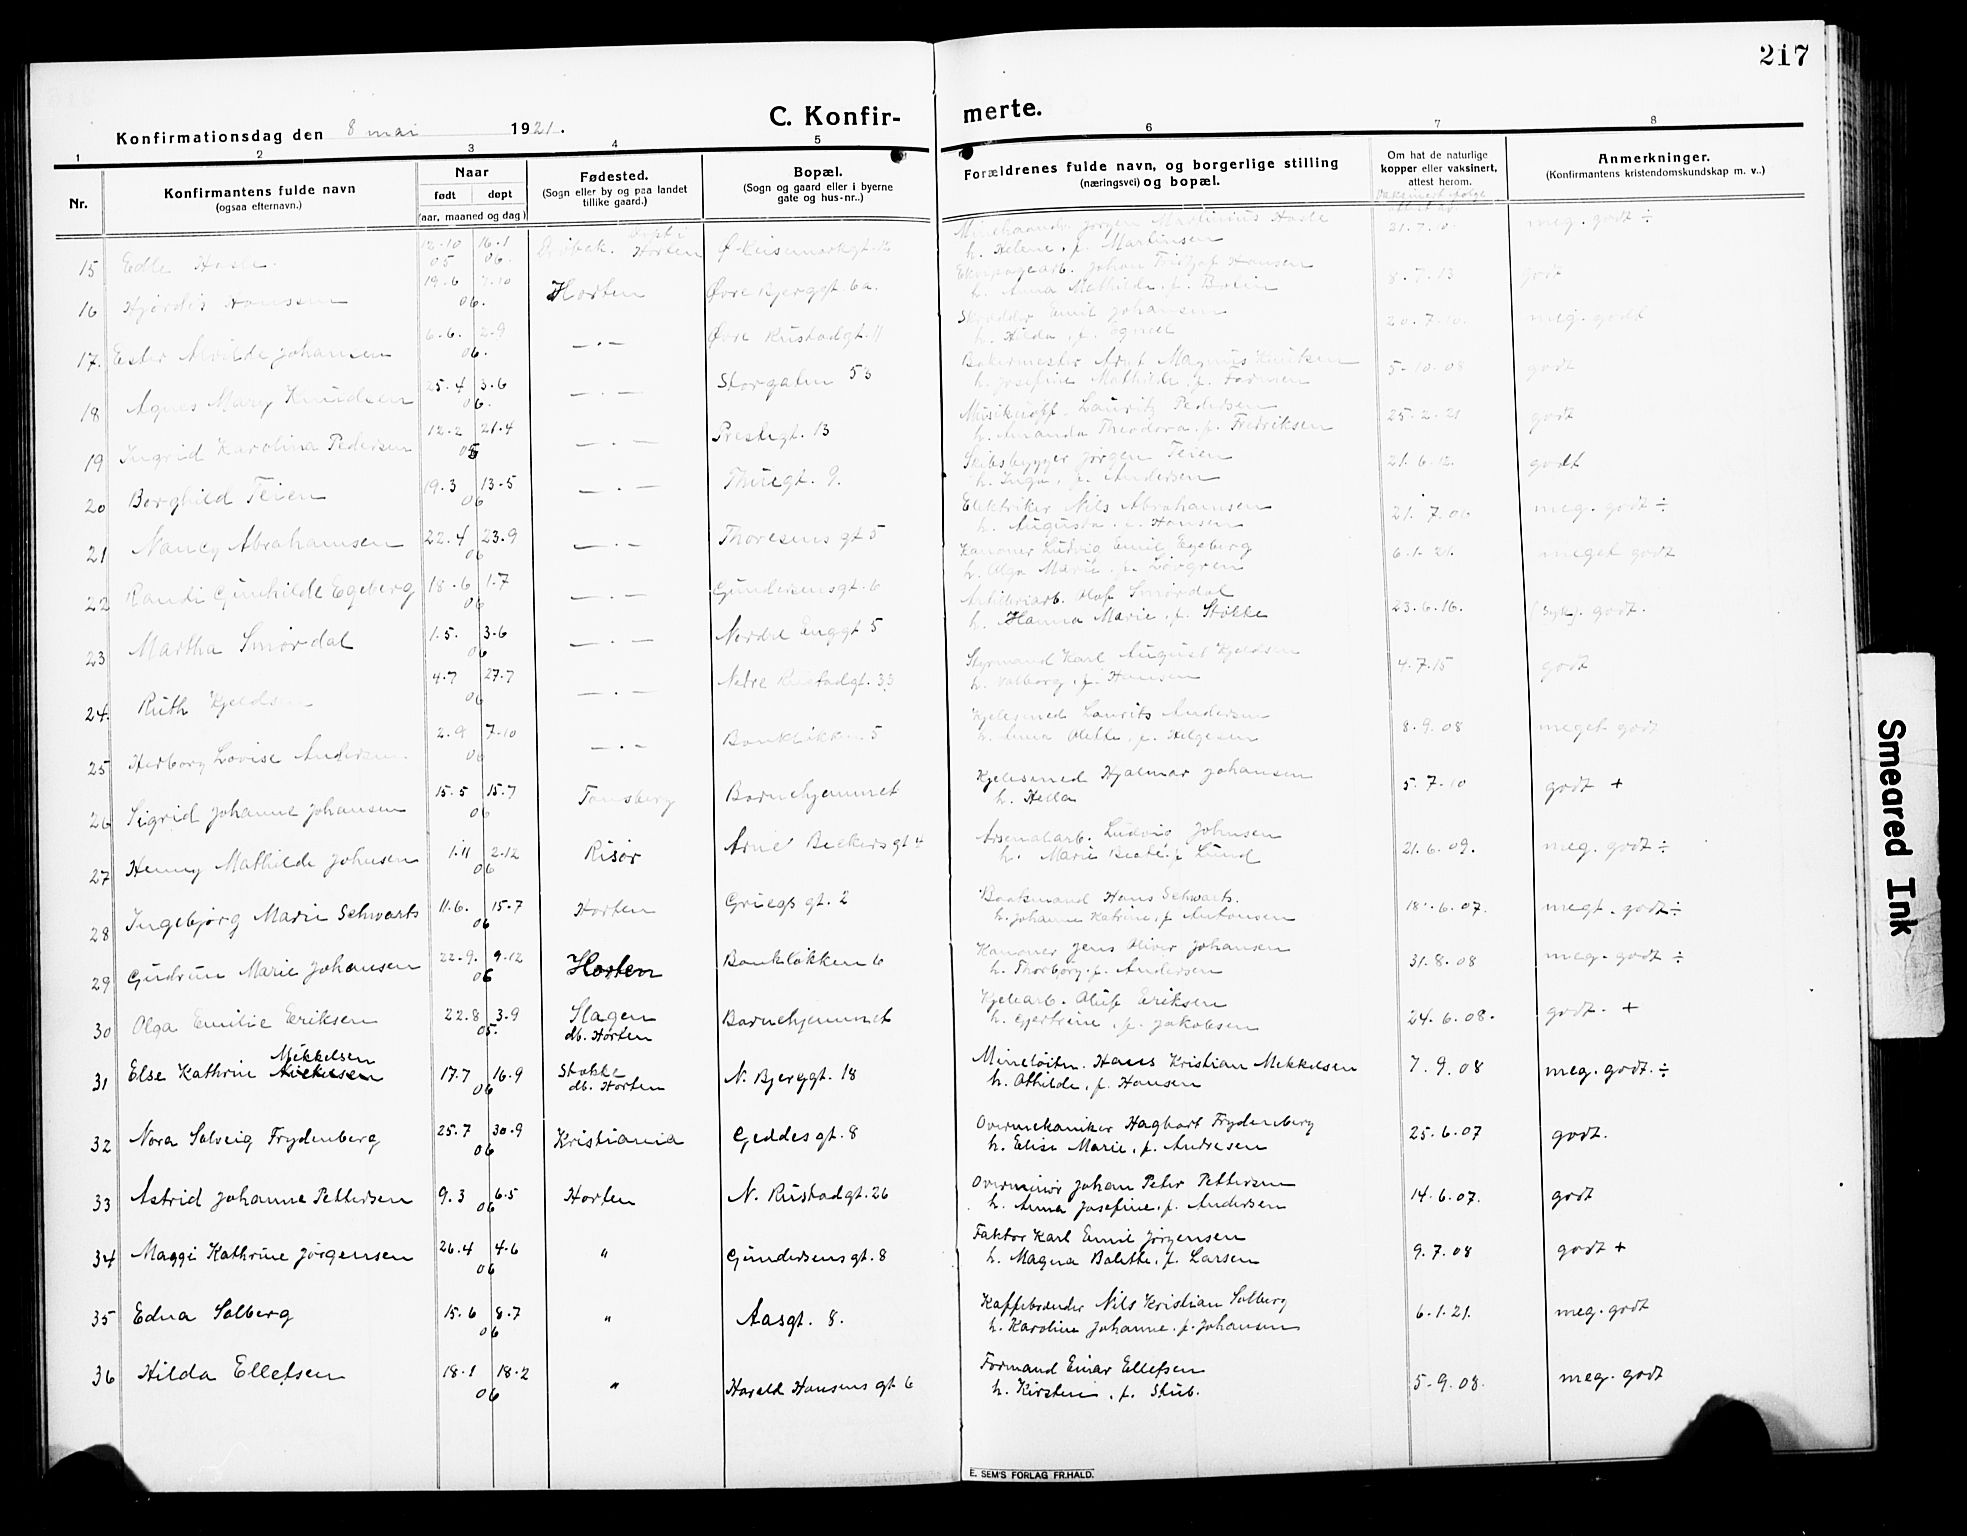 217
C. Konfir- merte.
Konfirmationsdag den 8 mai 1921.
1 2 3 4 5 6 7 8
Nr.
Konfirmantens fulde navn
(ogsaa efternavn.)
Naar
født døpt
(aar, maaned og dag)
Fødested.
(Sogn eller by og paa landet
tillike gaard.)
Bopæl.
(Sogn og gaard eller i byerne
gate og hus-nr..)
Forældrenes fulde navn, og borgerlige stilling
(næringsvei) og bopæl.
Om hat de naturlige
kopper eller vaksinert,
attest herom.
Anmerkninger.
(Konfirmantens kristendomskundskap m. v..)
15 Edle Hasle. 12-10 05 16-1 06. Drøbak. døpt i Horten
Jørgen Martinius Hasle
h. Helene, f. Martinsen
21.7.10. meg. godt ÷
16 Hjørdis Hansen 19.6 7.10 06. Horten Øvre Bjerggt. 6a.
Johan Fritjof Hansen
h. Anna Mathilde, f. Bolin
8.7.13 godt
17. Ester Alvilde Johansen 6.6. 2.9 06. —.— Øvre Rustadgt. 11
Skrædder Emil Johansen
h. Hilda, f.
20.7.10. meg. godt
18 Agnes Mary Knudsen 25.4 3.6 06. —.— Storgaten 53
Bakermester Magnus Knutsen
h. Josefine Mathilde, f.
5-10-08 godt
19 Ingrid Karolina Pedersen 12.2 21.4 —.— Prestegt. 13
Lauritz Pedersen
h. Amanda Theodora, f. Fredriksen
25.2.21 godt
20 Borghild Teien 19.3 13-5 06 —.— Thuegt. 9.
Skibsbygger Jørgen Teien
h. Inga, f. Andersen
21.6.12. godt
21 Nancy Abrahamsen 22.4 23.9 06 —.— Thoresens gt 5
Elektriker Nils Abrahamsen
h. Augusta, f. Hansen
21.7.06 meg. godt ÷
22 Randi Gunhilde Egeberg 18.6 1.7 06 —.— Gundersensgt. 6
Kanoner Ludvig Emil Egeberg
h. Olga Marie, f. Lørgren
6.1.21. meget godt
23 Martha Smørdal 1.5. 3.6 06 —.— Nordre Enggt 5
Artilleriarb. Olaf Smørdal
h. Hanna Marie, f. Stokke
23.6.16. (syk). godt.
24. Ruth Kjeldsen 4.7 27.7 06 —.— Nedre Rustadgt. 33
Styrmand Karl August Kjeldsen
h. Valborg, f. Hansen
4.7.15 godt
25 Herborg Lovise Andersen. 2.9 7-10 06 —.— Bankløkken 5
Kjelesmed Laurits Andersen
h. Anna Olette, f. Helgesen
8.9.08 meget godt
26 Sigrid Johanne Johansen 15.5 15.7 06 Tønsberg Barnehjemmet
Kjelesmed Hjalmar Johansen
h. Hella
5.7.10 godt +
27 Henny Mathilde Johnsen 1.11 2.12 06 Risør Arne Beckers gt 4
Arsenalarb. Ludvig Johnsen
h. Marie Beate, f. Lund
21.6.09. meg. godt ÷
28 Ingebjørg Marie Schwarts 11.6. 15.7 06 Horten Griegs gt. 2
Baatsmand Hans Schwarts.
h. Johanne Katrine, f. Antonsen
18.6.07. megt. godt ÷
29 Gudrun Marie Johansen 22.9. 9.12 06 Horten Bankløkken 6
Kanoner Jens Oliver Johansen
h. Thorborg, f. Andersen
31.8.08 meg. godt ÷
30 Olga Emilie Eriksen 22.8 3.9 05. Slagen
db. Horten Barnehjemmet
Kjelearb. Oluf Eriksen
h. Gjertrine, f. Jakobsen
24.6.08. godt. +
31 Else Kathrine Mikkelsen 17.7 16.9 06 Stokke
db. Horten N. Bjerggt. 18
Mineløitn. Hans Kristian Mekkelsen
h. Athilde, f. Hansen
7.9.08 meg. godt. ÷
32 Nora Solveig Frydenberg 25.7 30.9 06 Kristiania Geddesgt. 8
Overmekaniker Hagbart Frydenberg
h. Elise Marie, f. Andresen
25.6.07 godt.
33 Astrid Johanne Pettersen 9.3 6.5 06 Horten N. Rustadgt. 26
Overminør Johan Peter Pettersen
h. Anna Josefine, f. Andersen
14.6.07. godt
34 Maggi Kathrine Jørgensen 26.4 4.6 06 " Gundersensgt. 8
Faktor Karl Emil Jørgensen
h. Magna Balette, f. Larsen
9.7.08 godt +
35 Edna Solberg 15.6 8.7 06 " Aasgt. 8.
Kaffebrænder Nils Kristian Solberg
h. Karoline Johanne, f. Johansen
6.1.21. meg. godt
36 Hilda Ellefsen 18.1 18.2 06 " Harald Hansens gt. 6
Formand Einar Ellefsen
h. Kirsten, f. Stub.
5.9.08. meg. godt
E. SEM'S FORLAG FR.HALD.
Smeared Ink